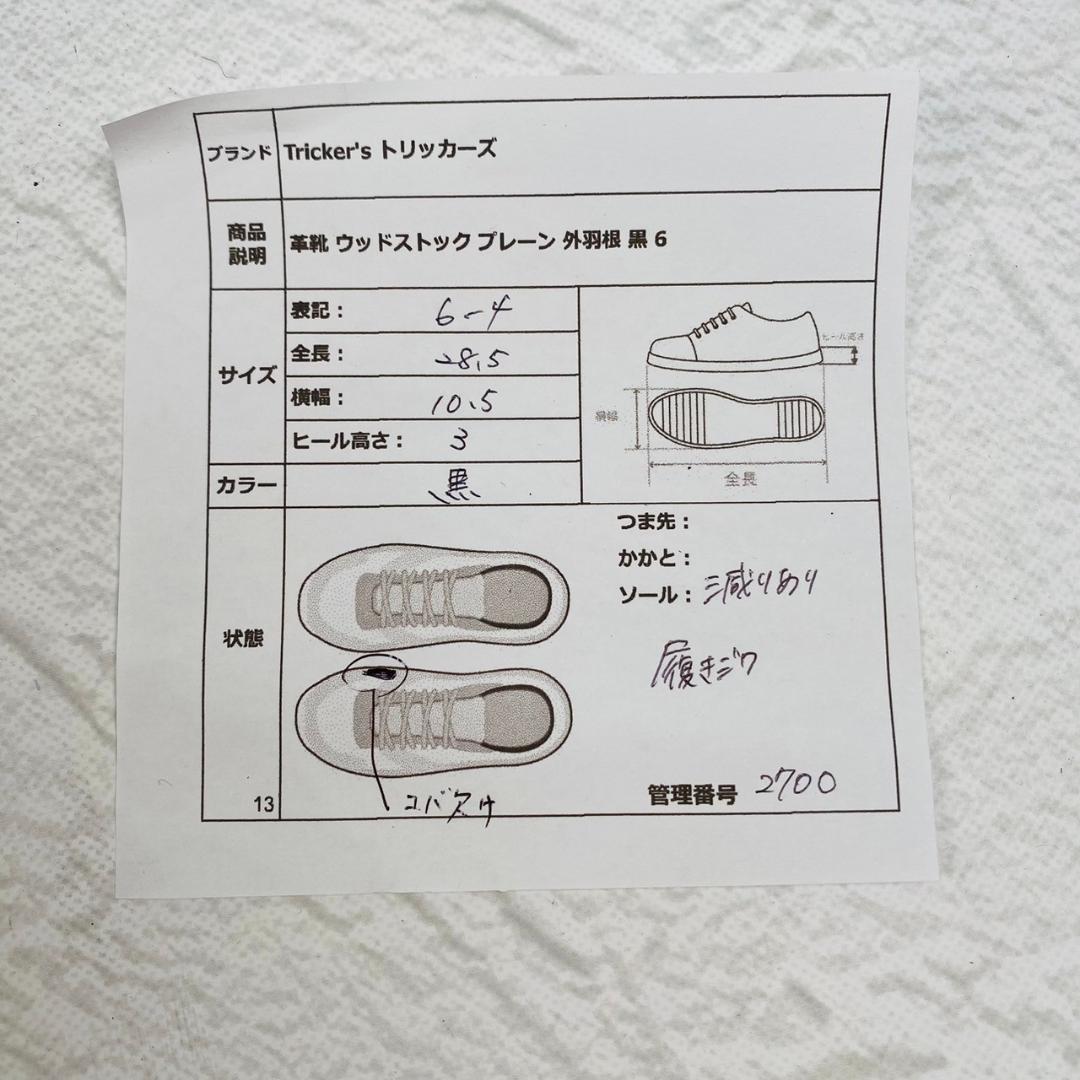 ブランド Tricker's トリッカーズ
商品説明 革靴 ウッドストック プレーン 外羽根 黒 6
サイズ
表記： 6-4
全長： 28.5
横幅： 10.5
ヒール高さ： 3
ヒール高さ
横幅
全長
カラー 黒
状態
つま先：
かかと：
ソール： 減りあり
履きジワ
コバ欠け
管理番号 2700
13